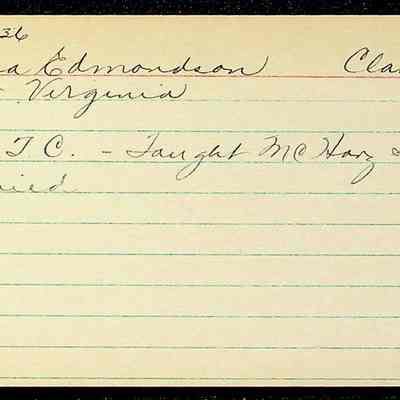 36
a Edmondson Cla
Virginia
T C. - Taught McHarg &
ried